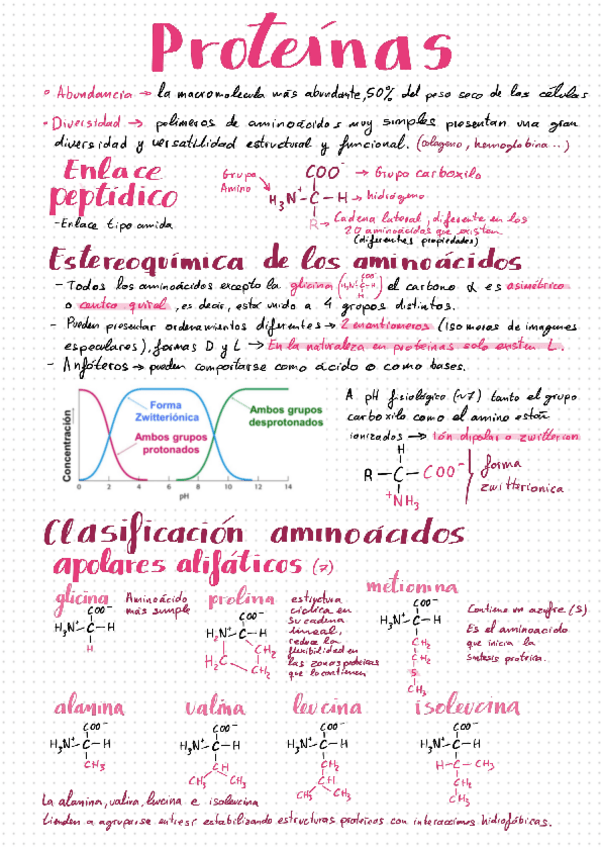 Proteínas
• Abundancia → la macromolecula más abundante, 50% del peso seco de las células
• Diversidad → polimeros de aminoácidos muy simples presentan una gran
diversidad y versatilidad estructural y funcional. (colageno, hemoglobina..)
Enlace
peptídico
- Enlace tipo amida
Grupo
Amino
COO⁻ → Grupo carboxilo
H₃N⁺-C-H → hidrógeno
R → Cadena lateral, diferente en los
20 aminoácidos que existen.
(diferentes propiedades)
Estereoquímica de los aminoácidos
- Todos los aminoácidos excepto la glicina (H₃N⁺-C-H COO⁻ H) el carbono α es asimétrico
o centro quiral, es decir, estar unido a 4 grupos distintos.
- Pueden presentar ordenamientos diferentes → 2 enantiomeros (isomeros de imagenes
especulares), formas D y L → En la naturaleza en proteinas solo existen L.
- Anfóteros → pueden comportarse como ácido o como bases.
Concentración
Forma
Zwitteriónica
Ambos grupos
protonados
Ambos grupos
desprotonados
0 2 4 6 8 10 12 14
pH
A pH fisiológico (~7) tanto el grupo
carboxilo como el amino están
ionizados → ión dipolar o zwitterion
H
R-C-COO⁻
⁺NH₃
forma
zwitterionica
Clasificación aminoácidos
apolares alifáticos (7)
glicina
Aminoácido
más simple
COO⁻
H₃N⁺-C-H
H
prolina
COO⁻
H₂N⁺-C-H
H₂C CH₂
CH₂
estructura
cíclica en
su cadena
lineal,
reduce la
flexibilidad en
las zonas proteicas
que lo contienen
metionina
COO⁻
H₃N⁺-C-H
CH₂
CH₂
S
CH₃
Contiene un azufre (S)
Es el aminoacido
que inicia la
sintesis proteica.
alanina
COO⁻
H₃N⁺-C-H
CH₃
valina
COO⁻
H₃N⁺-C-H
CH
CH₃ CH₃
leucina
COO⁻
H₃N⁺-C-H
CH₂
CH
CH₃ CH₃
isoleucina
COO⁻
H₃N⁺-C-H
H-C-CH₃
CH₂
CH₃
La alanina, valina, leucina e isoleucina
tienden a agruparse entre si estabilizando estructuras proteicas con interacciones hidrofóbicas.